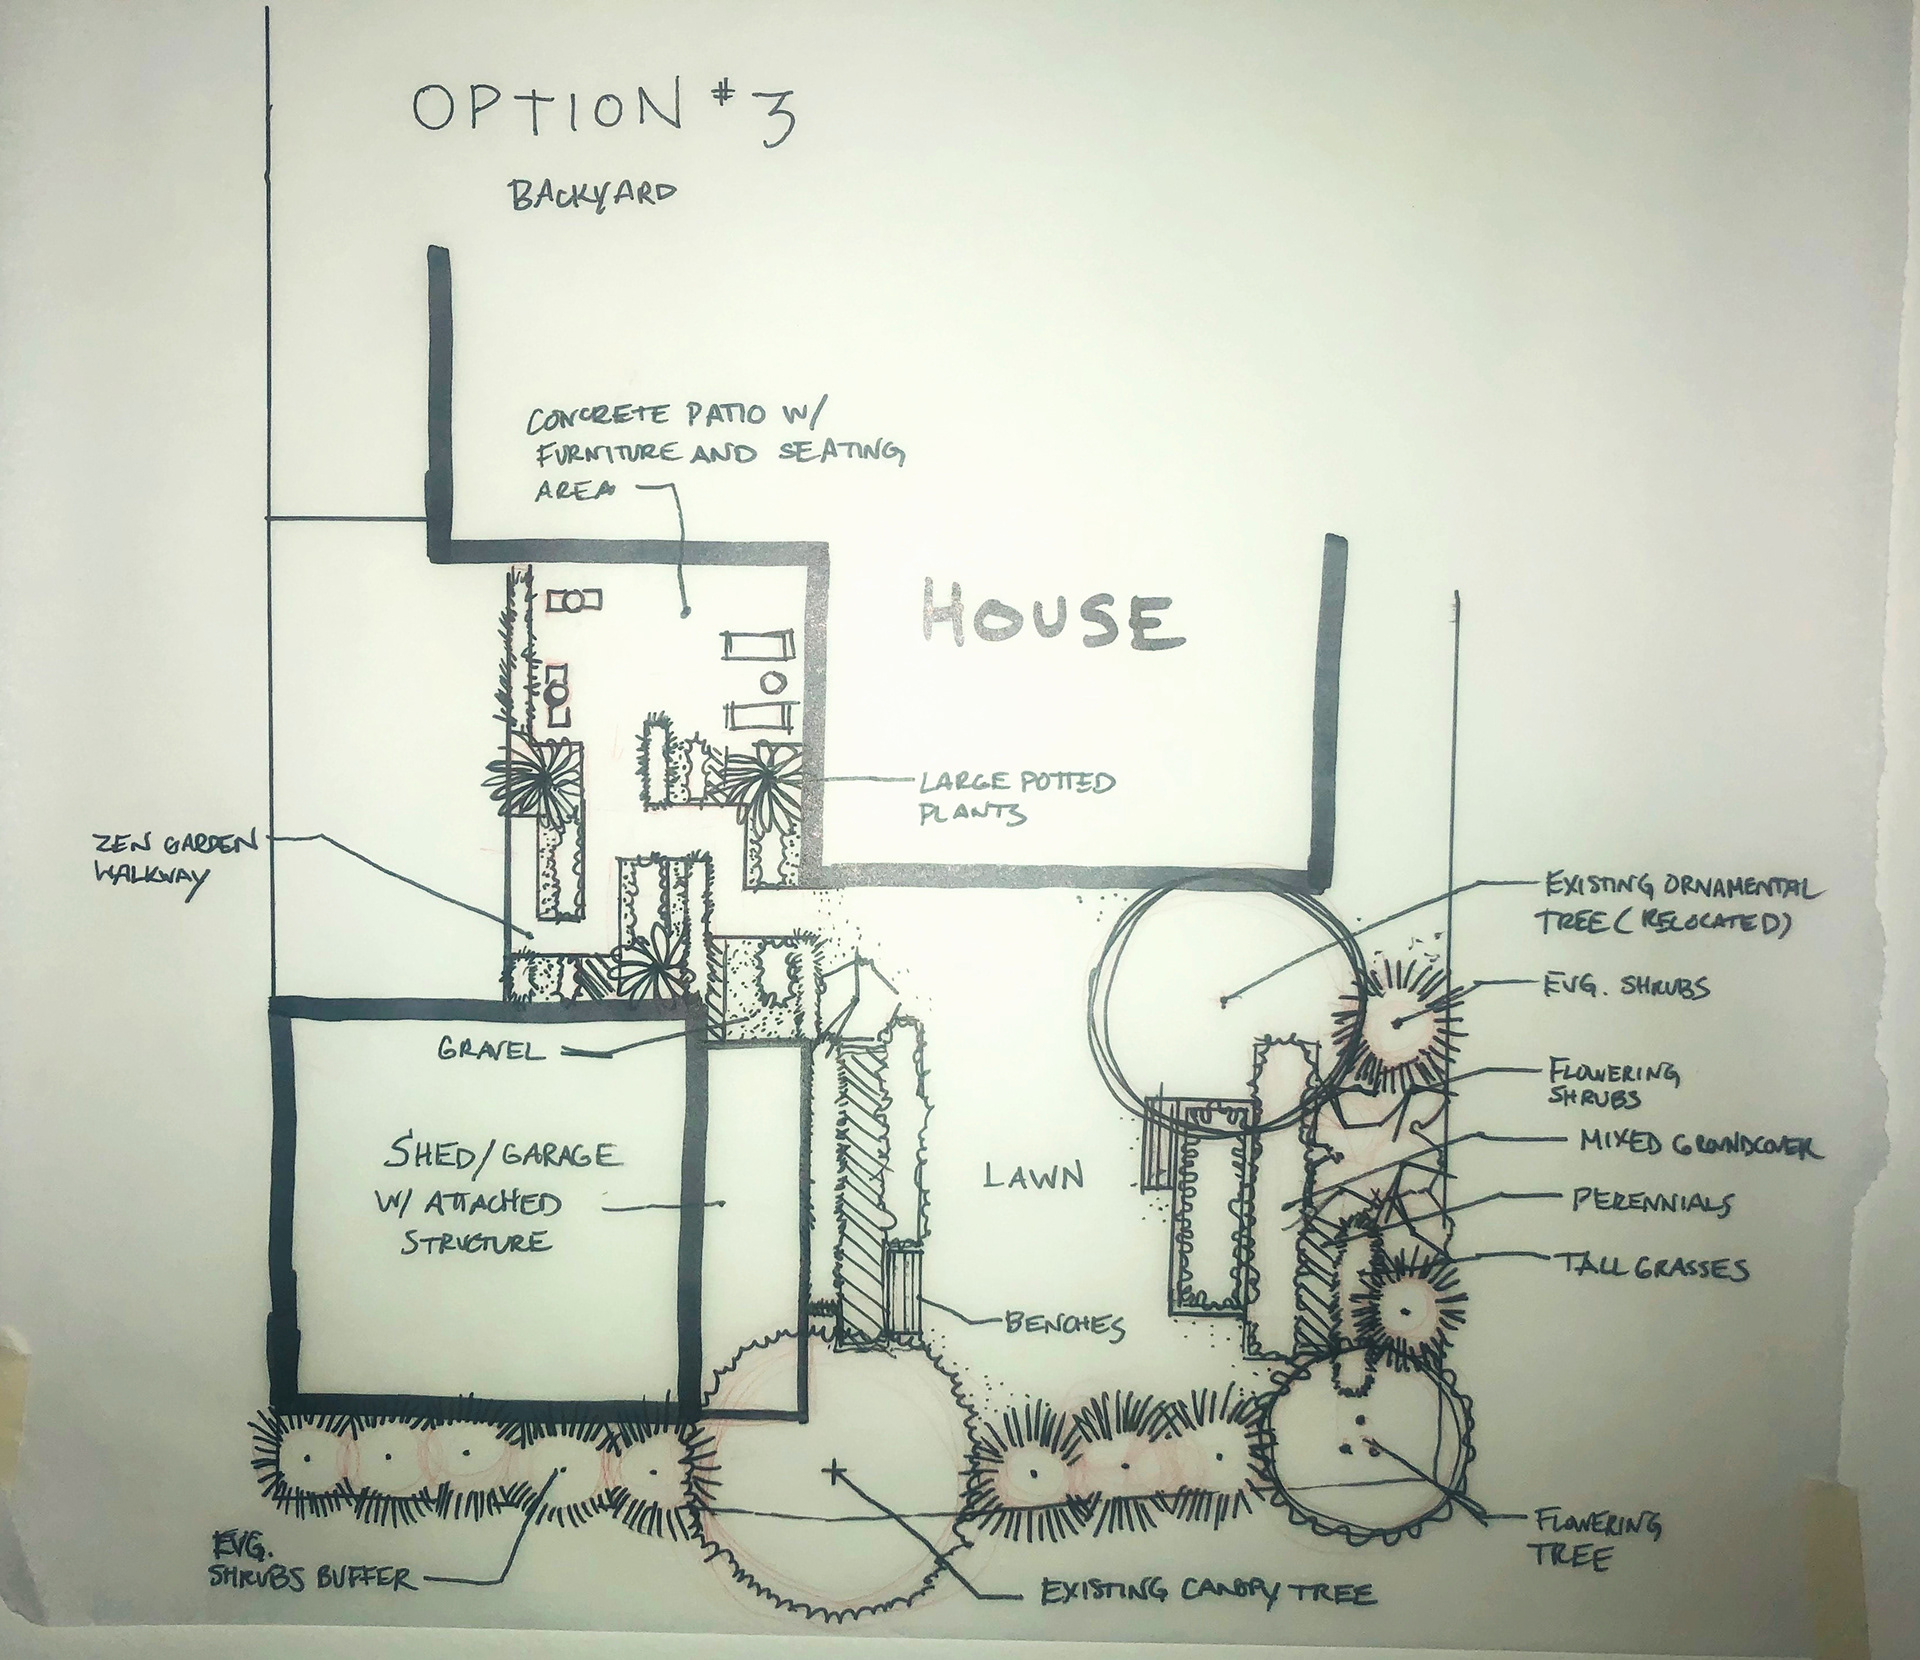 OPTION #3
BACKYARD
CONCRETE PATIO W/
FURNITURE AND SEATING
AREA
HOUSE
LARGE POTTED
PLANTS
ZEN GARDEN
WALKWAY
EXISTING ORNAMENTAL
TREE (RELOCATED)
EVG. SHRUBS
GRAVEL
FLOWERING
SHRUBS
MIXED GROUNDCOVER
SHED/GARAGE
W/ ATTACHED
STRUCTURE
LAWN
PERENNIALS
TALL GRASSES
BENCHES
EVG.
SHRUBS BUFFER
FLOWERING
TREE
EXISTING CANOPY TREE